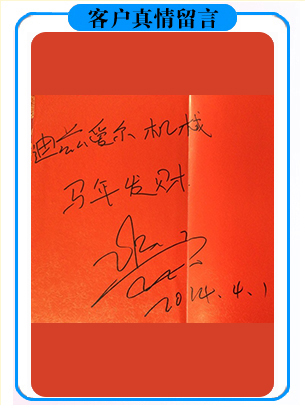 客户真情留言
迪兰爱尔机械
马年发财
2014.4.1